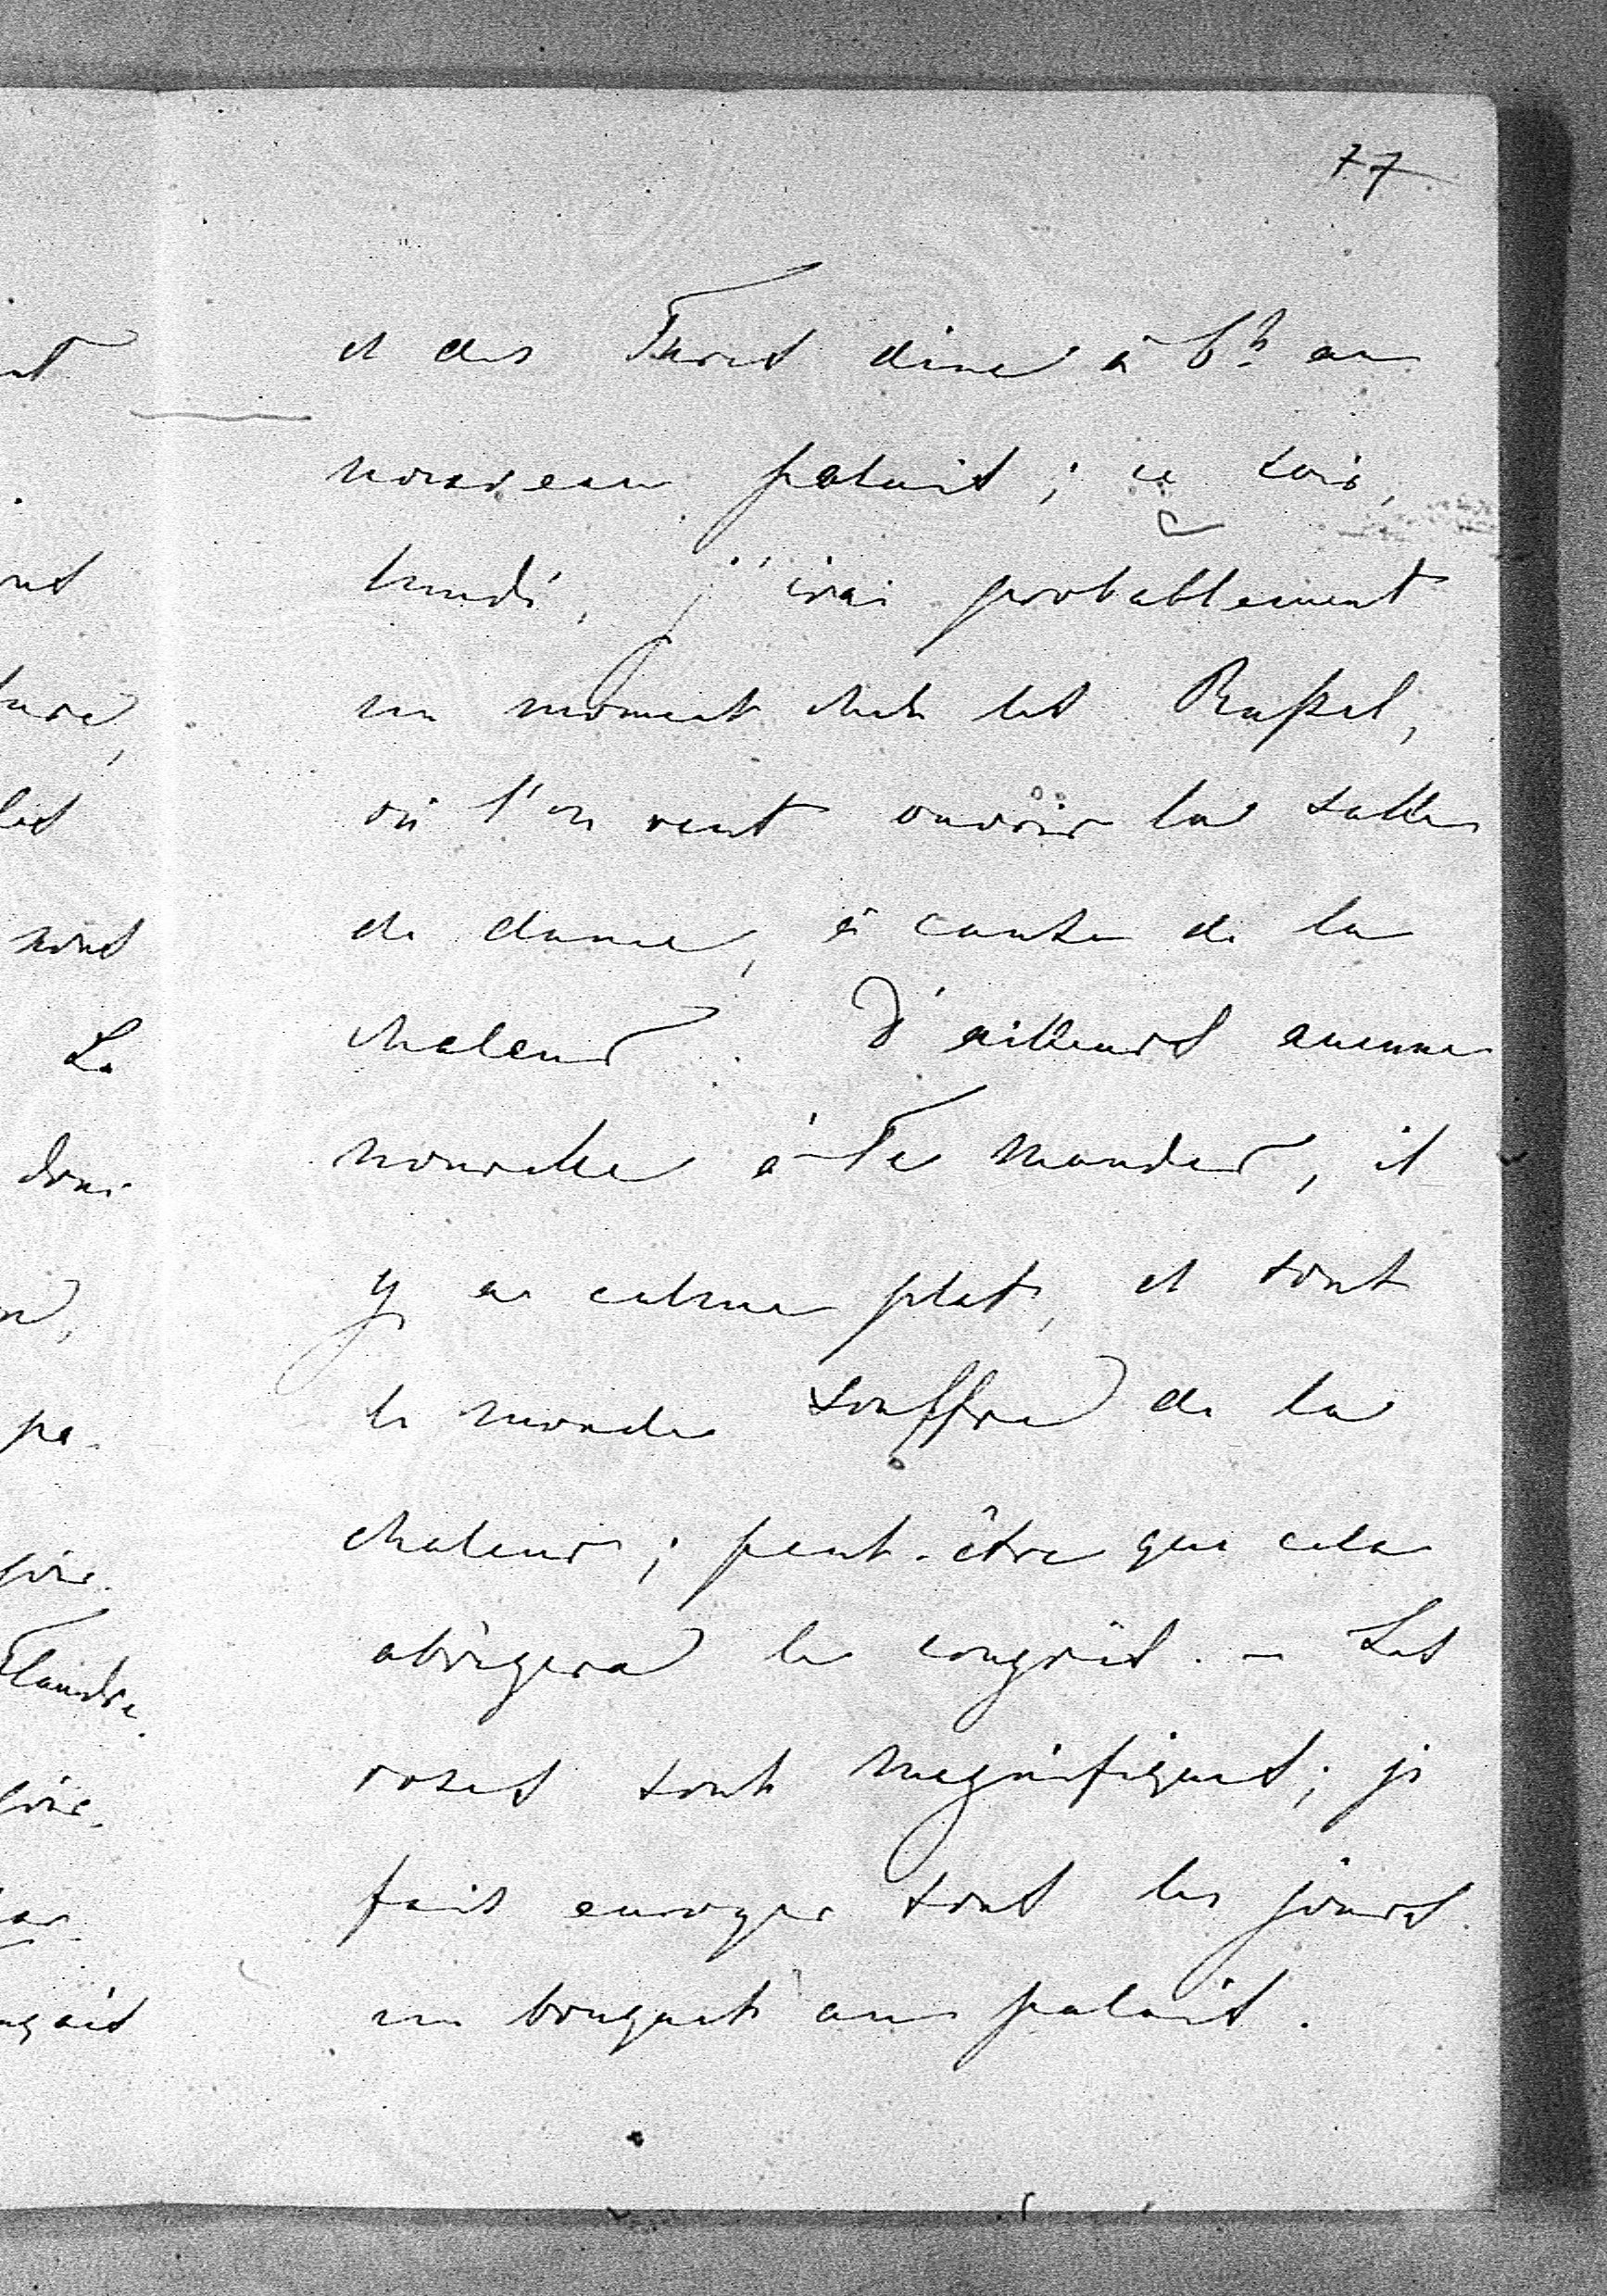 77
et des Turcs dine à 6h au
nouveau palais ; ce soir,
lundi, j'irai probablement
un moment chez les Russel,
où l'on veut ouvrir la salle
de danse, à cause de la
chaleur. D'ailleurs aucune
nouvelle à Te mander, il
y a calme plat, et tout
le monde souffre de la
chaleur ; peut-être que cela
abrègera le congrès. – Les
roses sont magnifiques ; je
fais envoyer tous les jours
un bouquet au palais.